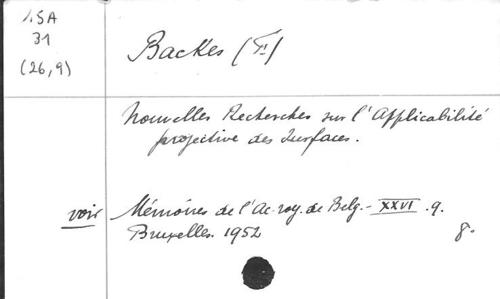 ASA
31
(26,9)
Backes (F.)
Nouvelles Recherches sur l'Applicabilité
projective des Surfaces.
voir Mémoires de l'Ac. roy. de Belg. - XXVI .9.
Bruxelles. 1952 8.